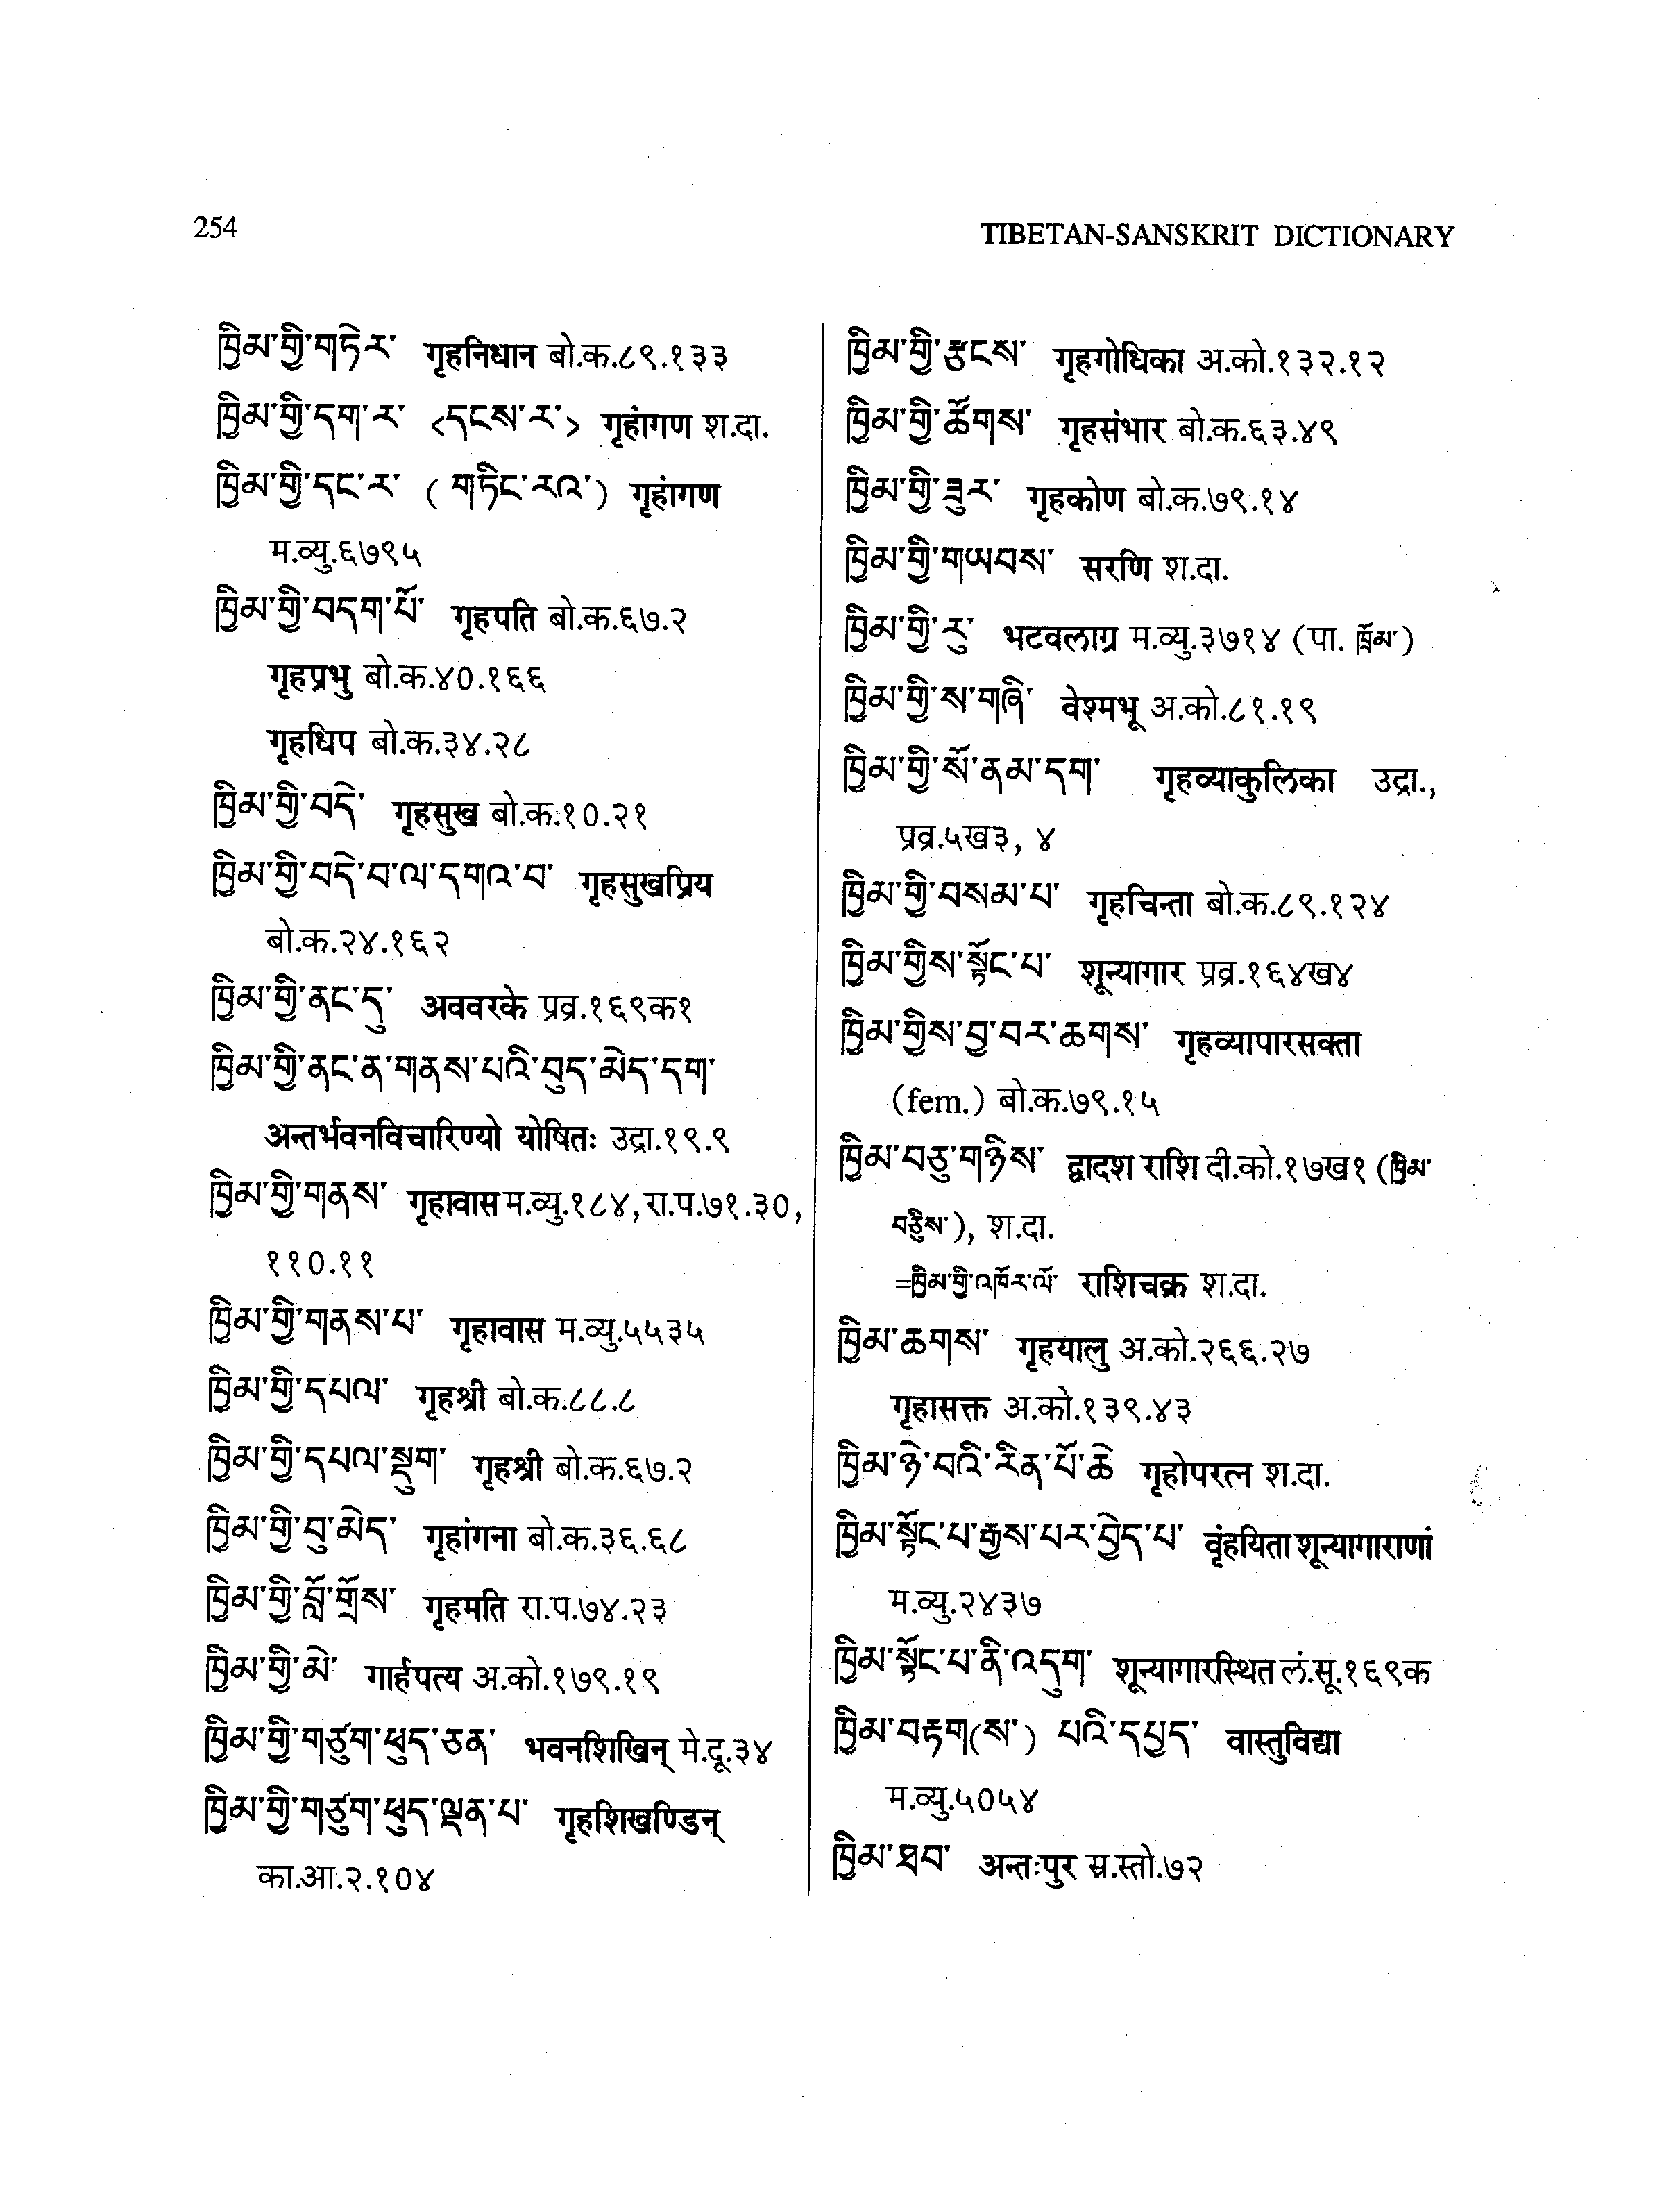 254
TIBETAN-SANSKRIT DICTIONARY
ཁྱིམ་གྱི་གཏེར་ गृहनिधान बो.क.८९.१३३
ཁྱིམ་གྱི་དག་ར་ <དངས་ར་> गृहांगण श.दा.
ཁྱིམ་གྱི་དང་ར་ (གཏིང་རའ་) गृहांगण
म.व्यु.६७९५
ཁྱིམ་གྱི་བདག་པོ་ गृहपति बो.क.६७.२
गृहप्रभु बो.क.४०.१६६
गृहधिप बो.क.३४.२८
ཁྱིམ་གྱི་བདེ་ गृहसुख बो.क.१०.२१
ཁྱིམ་གྱི་བདེ་བ་ལ་དགའ་བ་ गृहसुखप्रिय
बो.क.२४.१६२
ཁྱིམ་གྱི་ནང་དུ་ अववरके प्रव्र.१६९क१
ཁྱིམ་གྱི་ནང་ན་གནས་པའི་བུད་མེད་དག་
अन्तर्भवनविचारिण्यो योषितः उद्रा.१९.९
ཁྱིམ་གྱི་གནས་ गृहावास म.व्यु.१८४, रा.प.७१.३०,
११०.११
ཁྱིམ་གྱི་གནས་པ་ गृहावास म.व्यु.५५३५
ཁྱིམ་གྱི་དཔལ་ गृहश्री बो.क.८८.८
ཁྱིམ་གྱི་དཔལ་སྡུག་ गृहश्री बो.क.६७.२
ཁྱིམ་གྱི་བུ་མེད་ गृहांगना बो.क.३६.६८
ཁྱིམ་གྱི་བློ་གྲོས་ गृहमति रा.प.७४.२३
ཁྱིམ་གྱི་མེ་ गार्हपत्य अ.को.१७९.१९
ཁྱིམ་གྱི་གཙུག་ཕུད་ཅན་ भवनशिखिन् मे.दू.३४
ཁྱིམ་གྱི་གཙུག་ཕུད་ལྡན་པ་ गृहशिखण्डिन्
का.आ.२.१०४
ཁྱིམ་གྱི་རྩངས་ गृहगोधिका अ.को.१३२.१२
ཁྱིམ་གྱི་ཚོགས་ गृहसंभार बो.क.६३.४९
ཁྱིམ་གྱི་ཟུར་ गृहकोण बो.क.७९.१४
ཁྱིམ་གྱི་གཡབས་ सरणि श.दा.
ཁྱིམ་གྱི་རུ་ भटवलाग्र म.व्यु.३७१४ (पा. ཁྲོམ་)
ཁྱིམ་གྱི་ས་གཞི་ वेश्मभू अ.को.८१.१९
ཁྱིམ་གྱི་སོ་ནམ་དག་ गृहव्याकुलिका उद्रा.,
प्रव्र.५ख३, ४
ཁྱིམ་གྱི་བསམ་པ་ गृहचिन्ता बो.क.८९.१२४
ཁྱིམ་གྱིས་སྟོང་པ་ शून्यागार प्रव्र.१६४ख४
ཁྱིམ་གྱིས་བྱ་བར་ཆགས་ गृहव्यापारसक्ता
(fem.) बो.क.७९.१५
ཁྱིམ་བཅུ་གཉིས་ द्वादश राशि दी.को.१७ख१ (ཁྱིམ་
བཅིུས་), श.दा.
=ཁྱིམ་གྱི་འཁོར་ལོ་ राशिचक्र श.दा.
ཁྱིམ་ཆགས་ गृहयालु अ.को.२६६.२७
गृहासक्त अ.को.१३९.४३
ཁྱིམ་ཉེ་བའི་རིན་པོ་ཆེ གृहोपरत्न श.दा.
ཁྱིམ་སྟོང་པ་རྒྱས་པར་བྱེད་པ་ वृंहयिता शून्यागाराणां
म.व्यु.२४३७
ཁྱིམ་སྟོང་པ་ནི་འདུག་ शून्यागारस्थित लं.सू.१६९क
ཁྱིམ་བརྟག(ས་) པའི་དཔྱད་ वास्तुविद्या
म.व्यु.५०५४
ཁྱིམ་ཐབ་ अन्तःपुर स्र.स्तो.७२